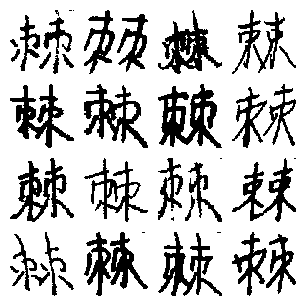 棘棘棘棘
棘棘棘棘
棘棘棘棘
棘棘棘棘